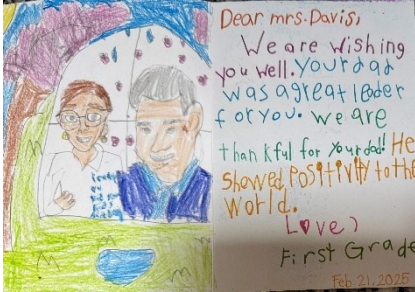 Dear mrs. Davis,
We are wishing
you well. Your dad
was a great leader
for you. We are
thankful for your dad! He
showed Positivity to the
World.
Love,
First Grade
Feb. 21, 2025